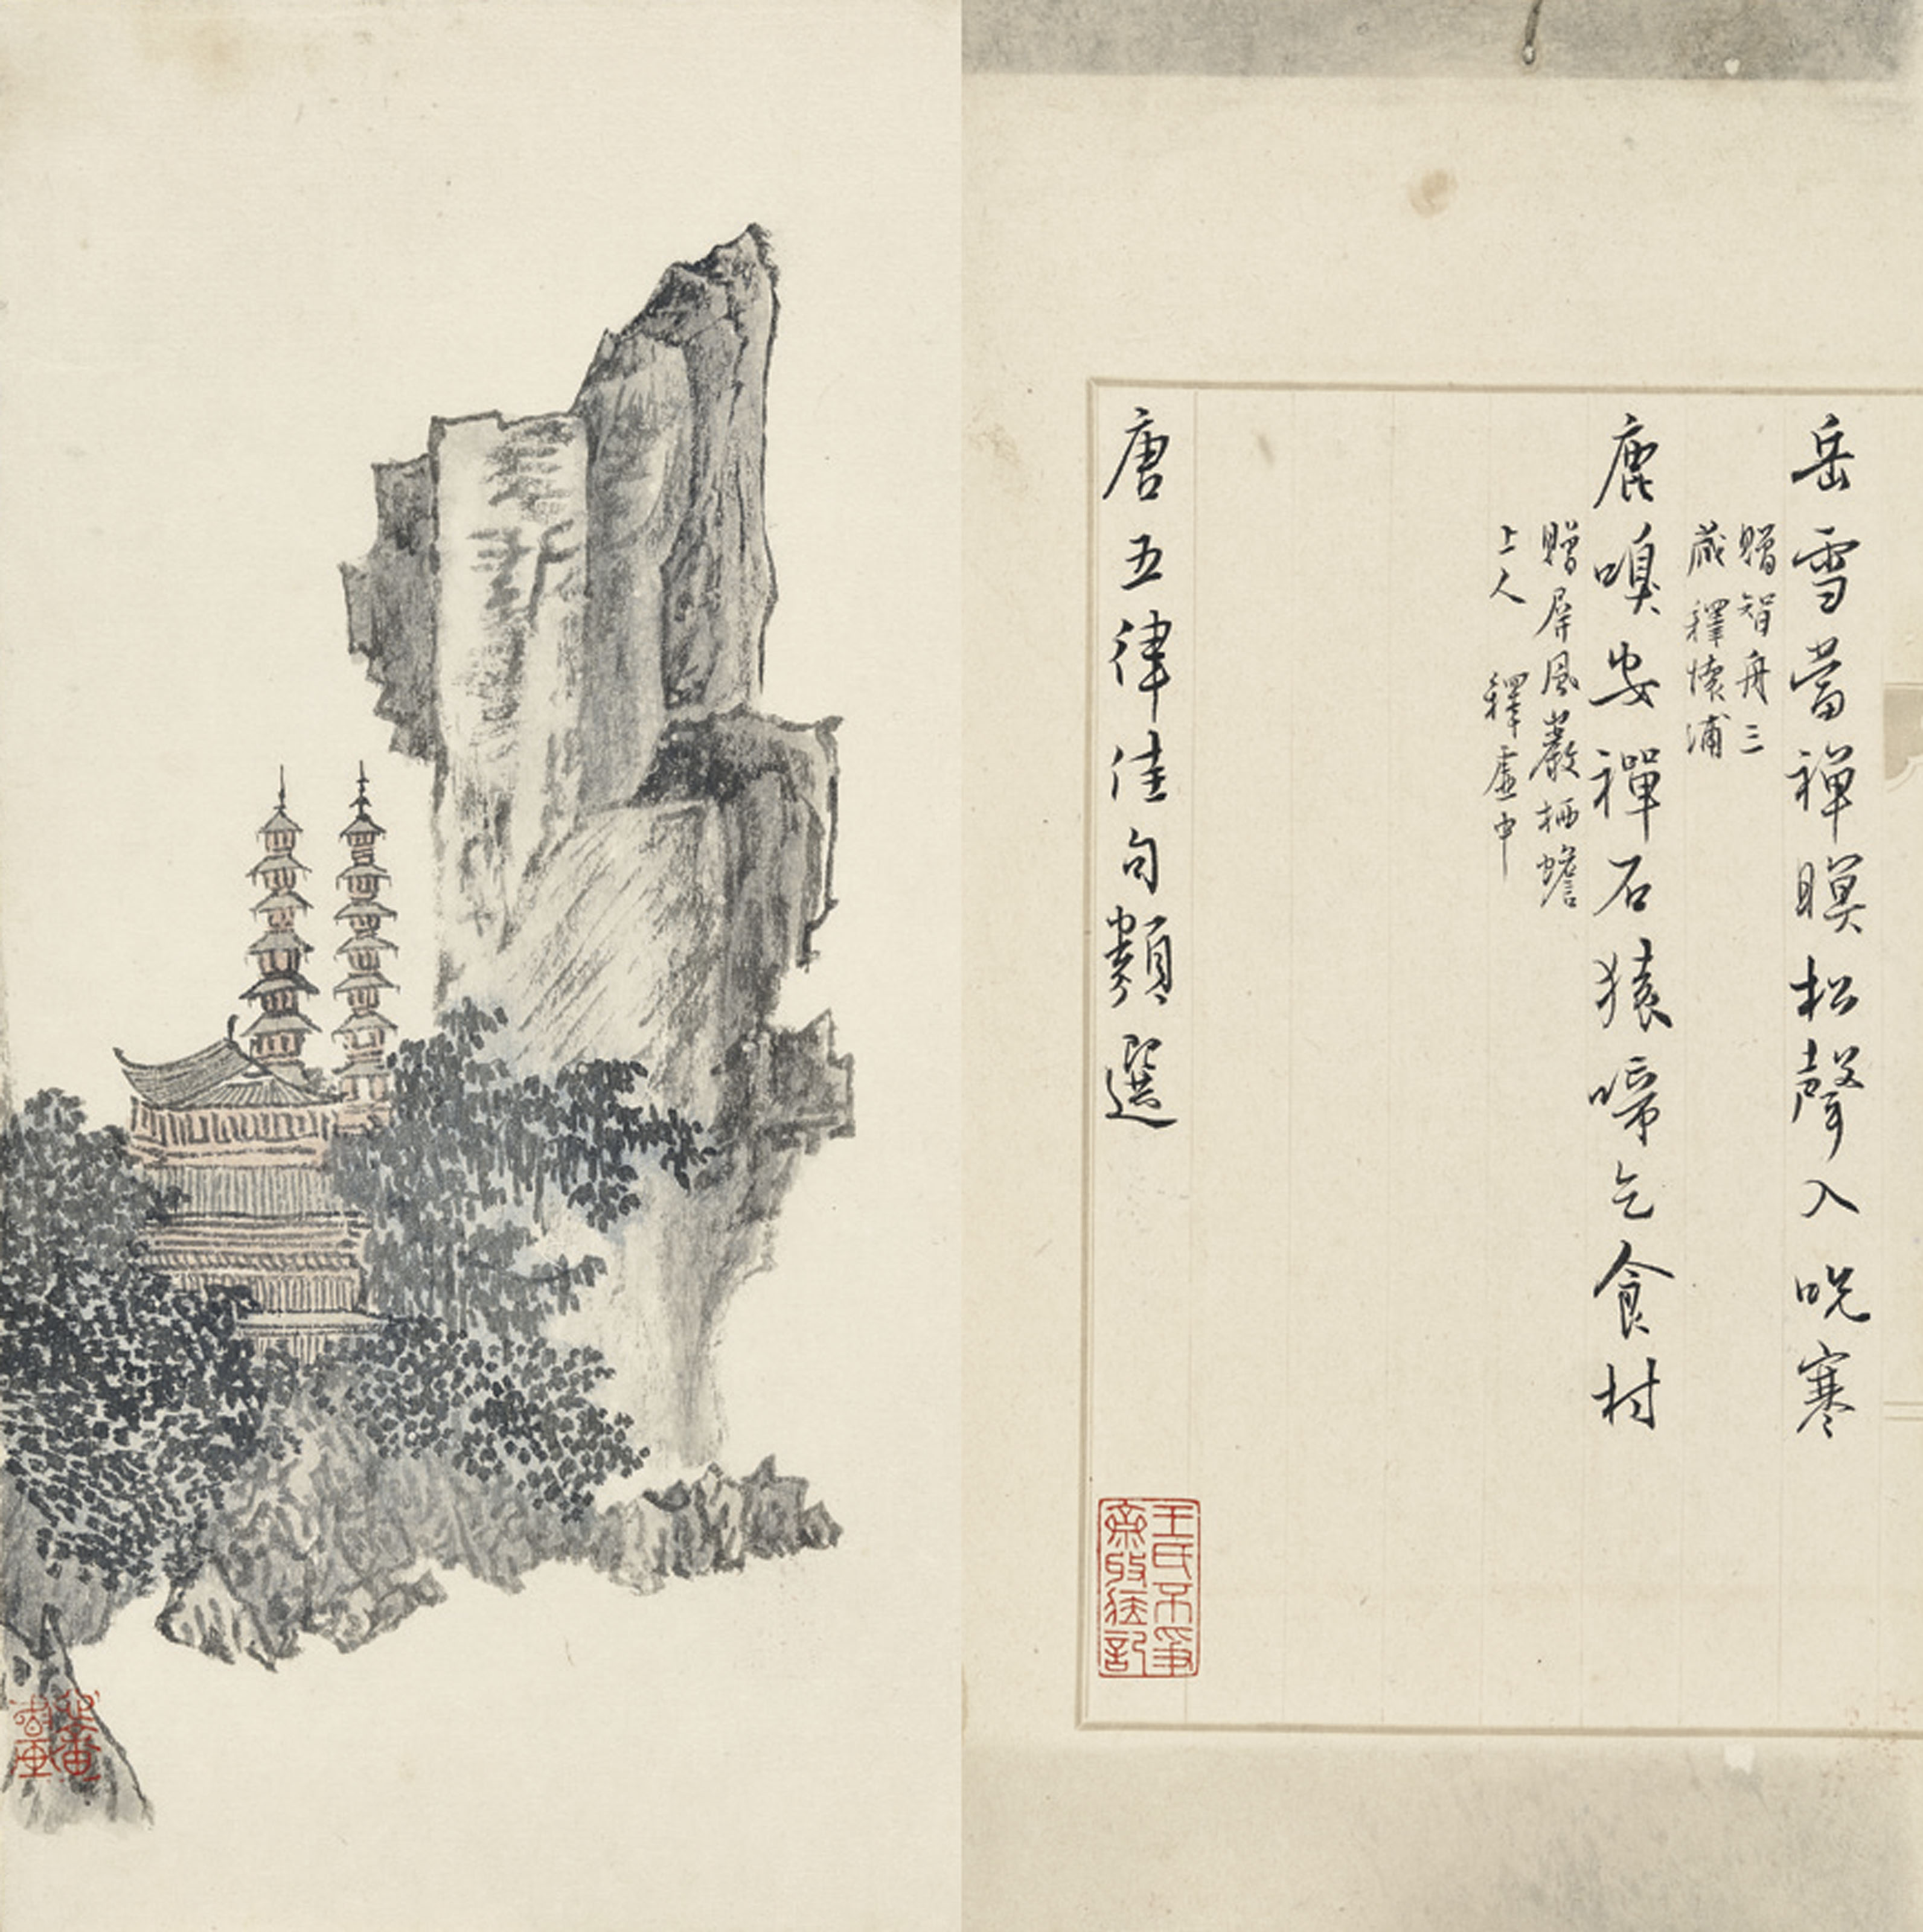 岳雪當禪暝松聲入晚寒
贈智舟三
藏 釋懷浦
鹿嗅安禪石猿啼乞食村
贈屏風巖栖蟾
上人 釋虛中
唐五律佳句類選